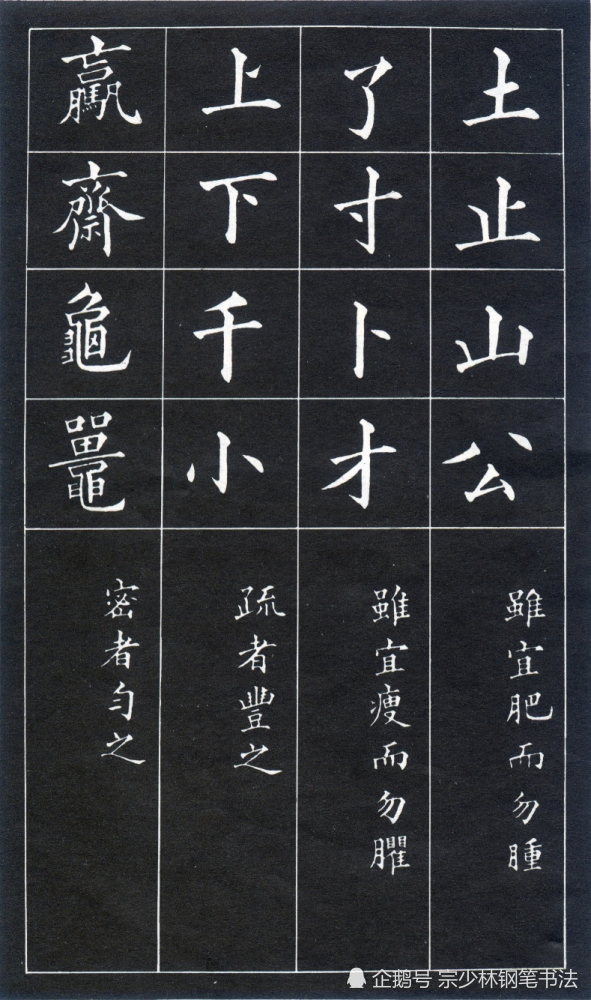 土止山公
雖宜肥而勿腫
了寸卜才
雖宜瘦而勿臞
上下千小
疏者豐之
驘齋龜鼉
密者勻之
企鹅号 宗少林钢笔书法